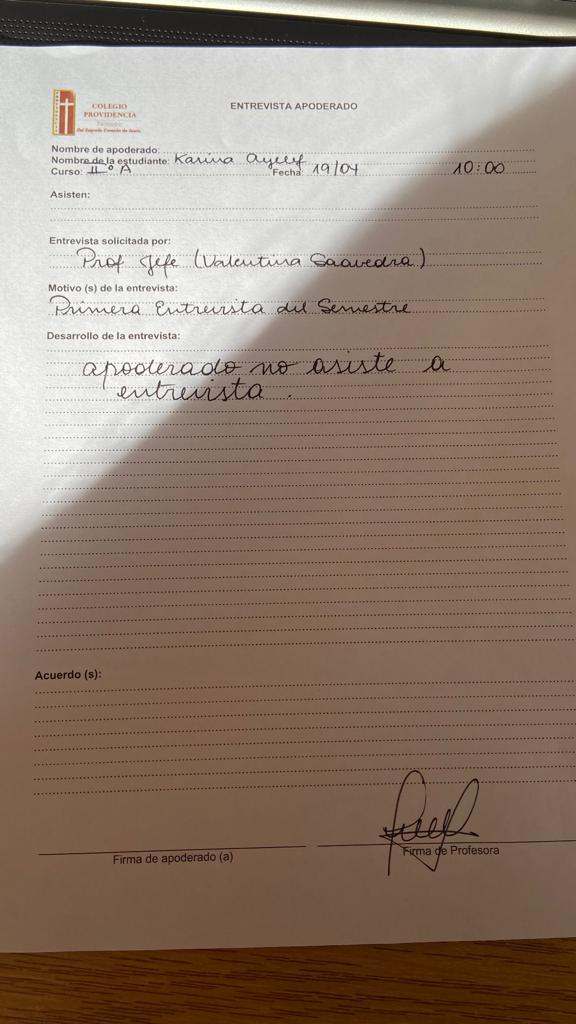 COLEGIO
PROVIDENCIA
Temuco
Del Sagrado Corazón de Jesús
ENTREVISTA APODERADO
Nombre de apoderado:
Nombre de la estudiante: Karina
Curso: IIº A Fecha: 19/04 10:00
Asisten:
Entrevista solicitada por:
Prof Jefe (Valentina Saavedra)
Motivo (s) de la entrevista:
Primera Entrevista del Semestre
Desarrollo de la entrevista:
apoderado no asiste a
entrevista.
Acuerdo (s):
Firma de apoderado (a)
Firma de Profesora